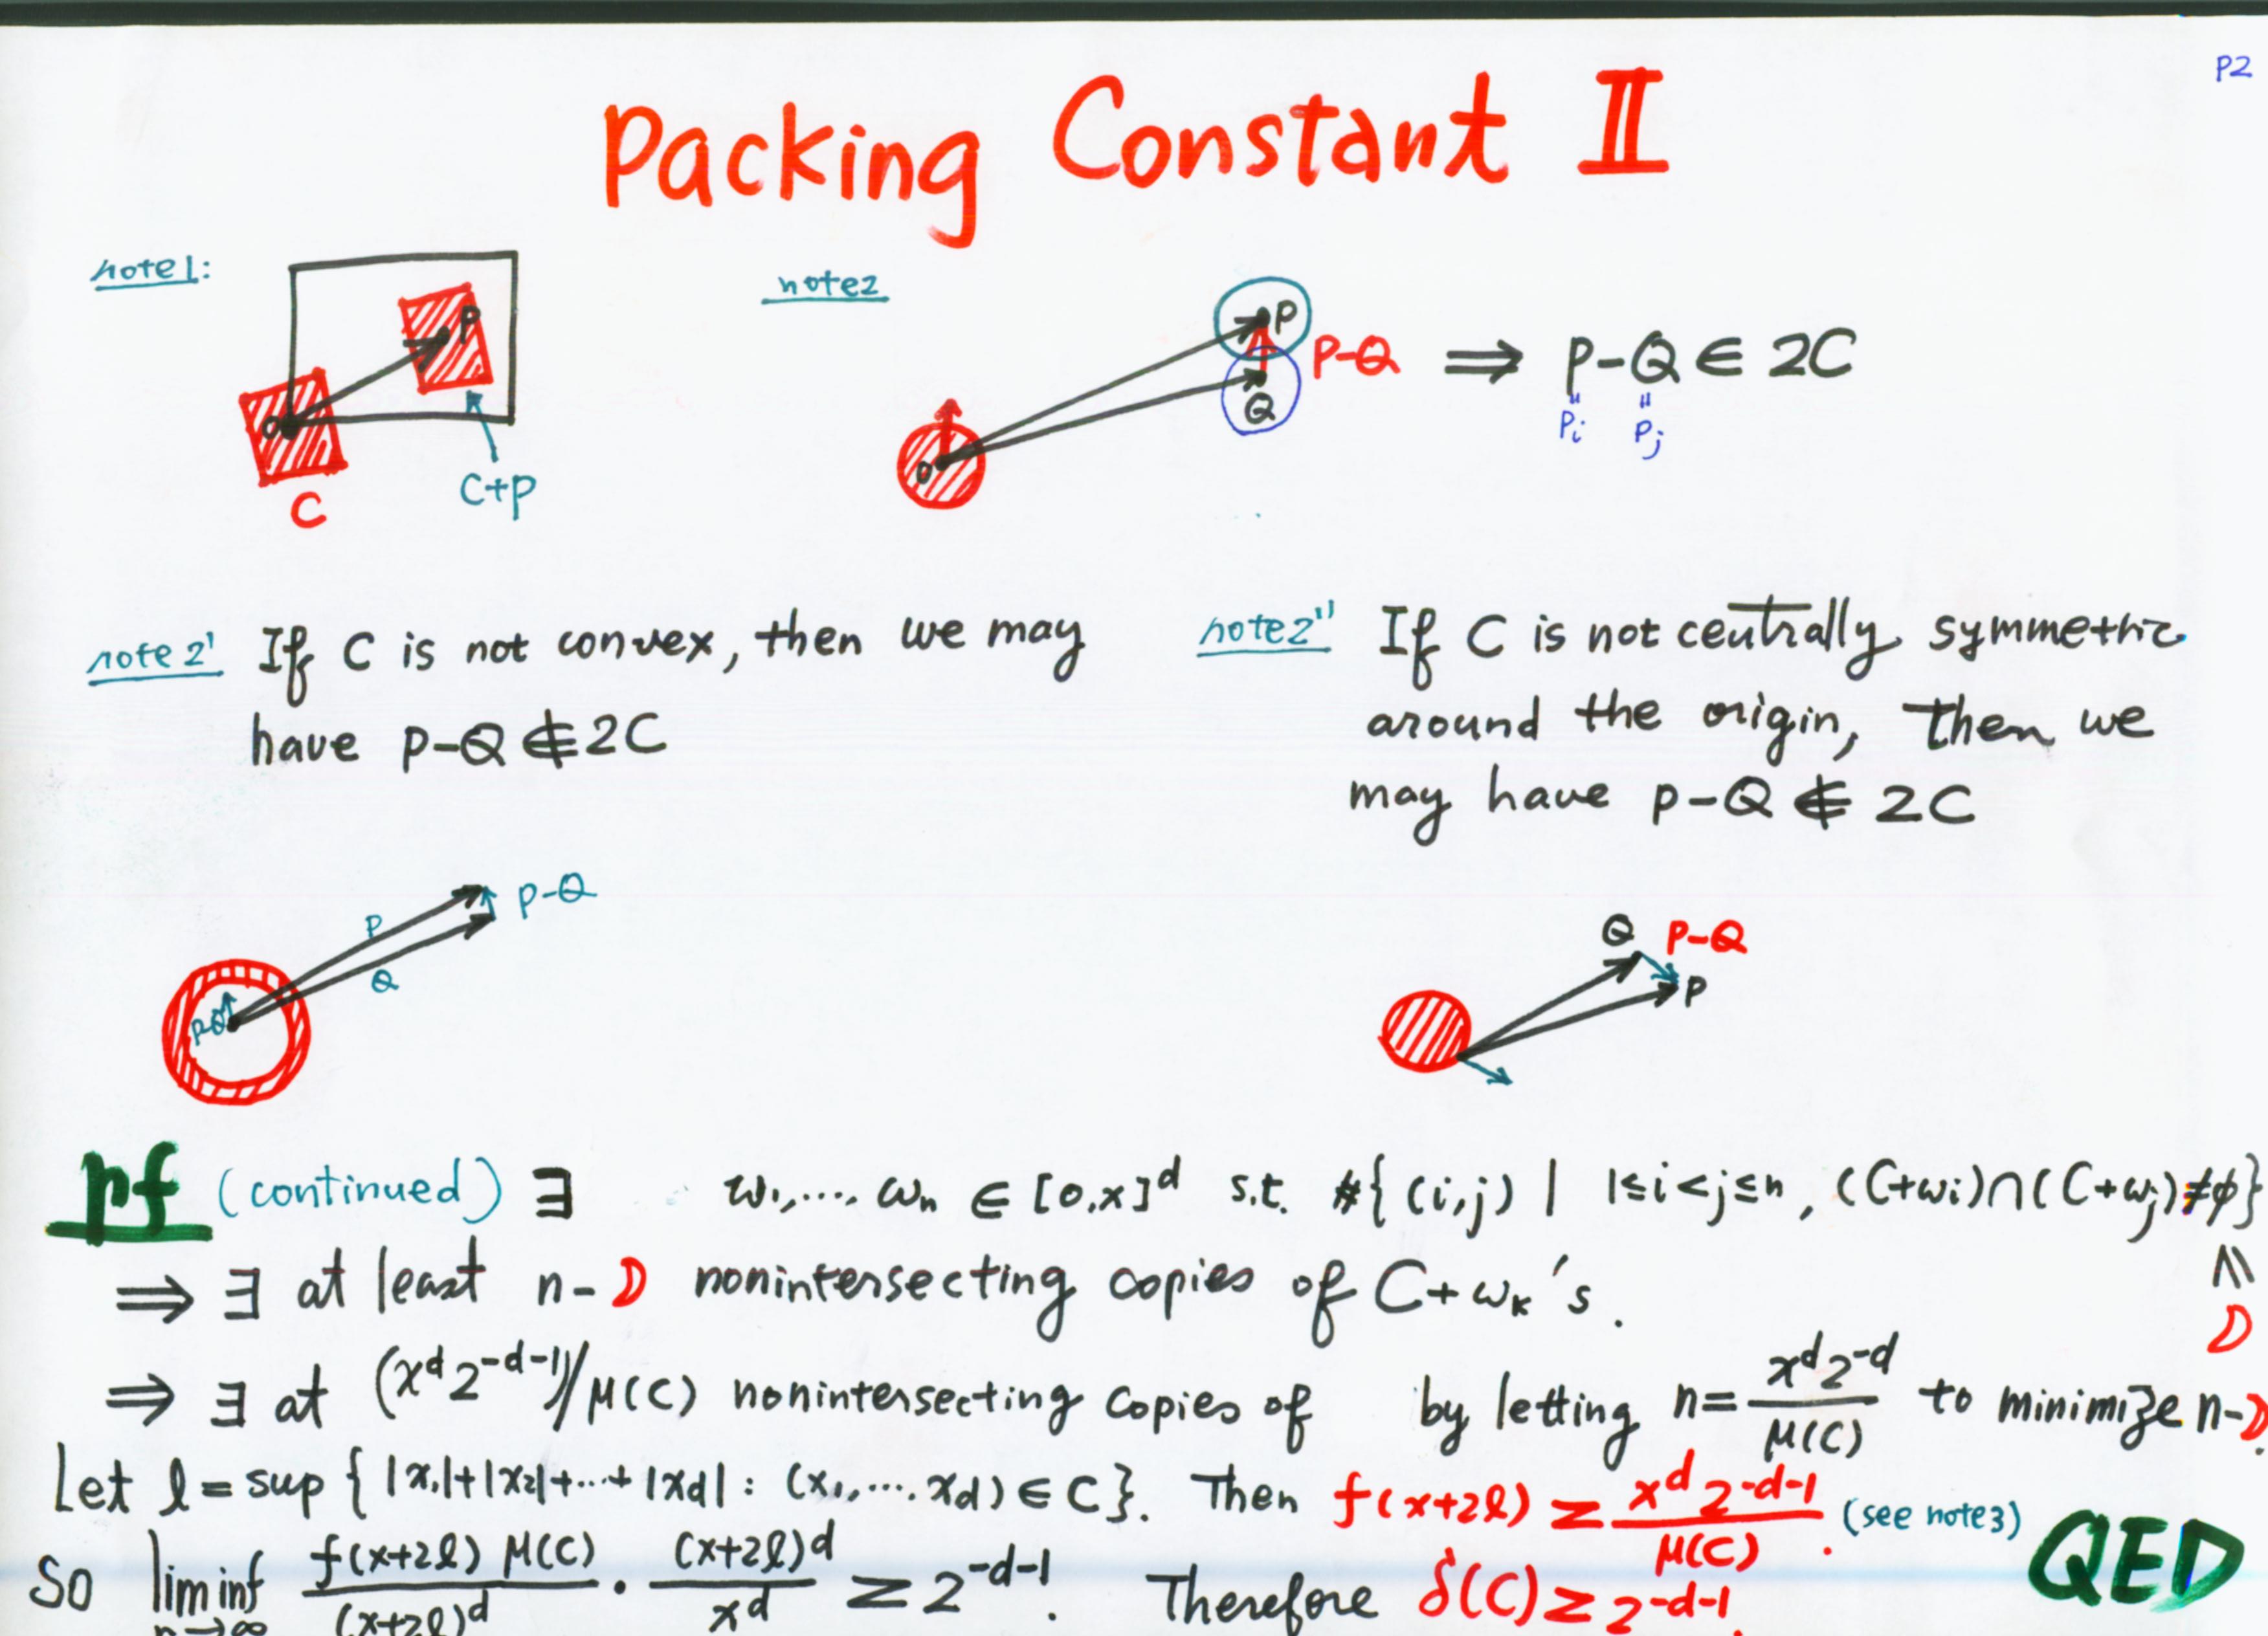 P2
Packing Constant II
note1:
O
P
C
C+P
note2
O
P
Q
P-Q ⟹ P-Q ∈ 2C
Pi Pj
note2' If C is not convex, then we may
have P-Q ∉ 2C
note2'' If C is not centrally symmetric
around the origin, then we
may have P-Q ∉ 2C
P
Q
P-Q
PQ
Q P-Q
P
pf (continued) ∃ w1,..., wn ∈ [0,x]^d s.t. #{(i,j) | 1≤i<j≤n, (C+wi)∩(C+wj)≠φ}
≤ D
⟹ ∃ at least n-D nonintersecting copies of C+wk's.
⟹ ∃ at (x^d 2^{-d-1})/μ(C) nonintersecting copies of by letting n= x^d 2^{-d} / μ(C) to minimize n-D.
Let l = sup {|x1|+|x2|+...+|xd| : (x1,....xd) ∈ C}. Then f(x+2l) ≥ x^d 2^{-d-1} / μ(C). (see note3)
So lim inf n→∞ f(x+2l) μ(C) / (x+2l)^d · (x+2l)^d / x^d ≥ 2^{-d-1}. Therefore δ(C) ≥ 2^{-d-1}.
QED